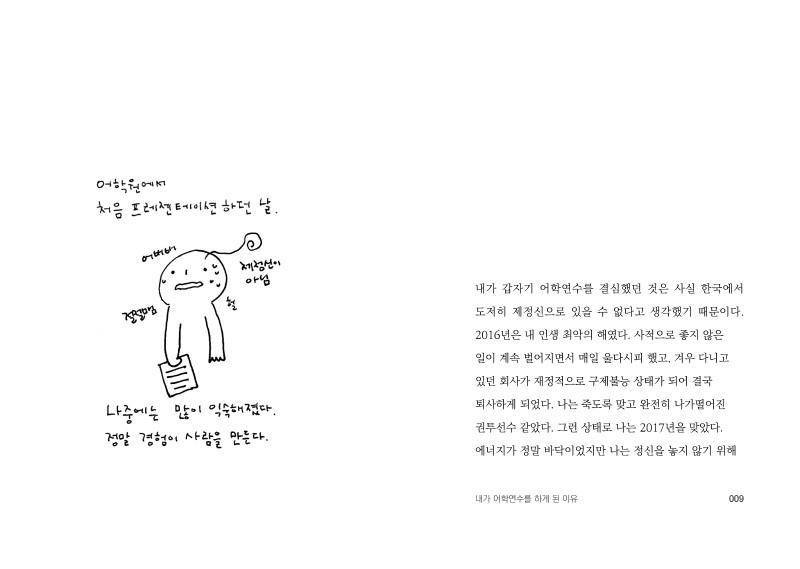 어학원에서
처음 프레젠테이션 하던 날.
어버버
제정신이
아님
절절맴
헐
나중에는 많이 익숙해졌다.
정말 경험이 사람을 만든다.
내가 갑자기 어학연수를 결심했던 것은 사실 한국에서
도저히 제정신으로 있을 수 없다고 생각했기 때문이다.
2016년은 내 인생 최악의 해였다. 사적으로 좋지 않은
일이 계속 벌어지면서 매일 울다시피 했고, 겨우 다니고
있던 회사가 재정적으로 구제불능 상태가 되어 결국
퇴사하게 되었다. 나는 죽도록 맞고 완전히 나가떨어진
권투선수 같았다. 그런 상태로 나는 2017년을 맞았다.
에너지가 정말 바닥이었지만 나는 정신을 놓지 않기 위해
내가 어학연수를 하게 된 이유
009